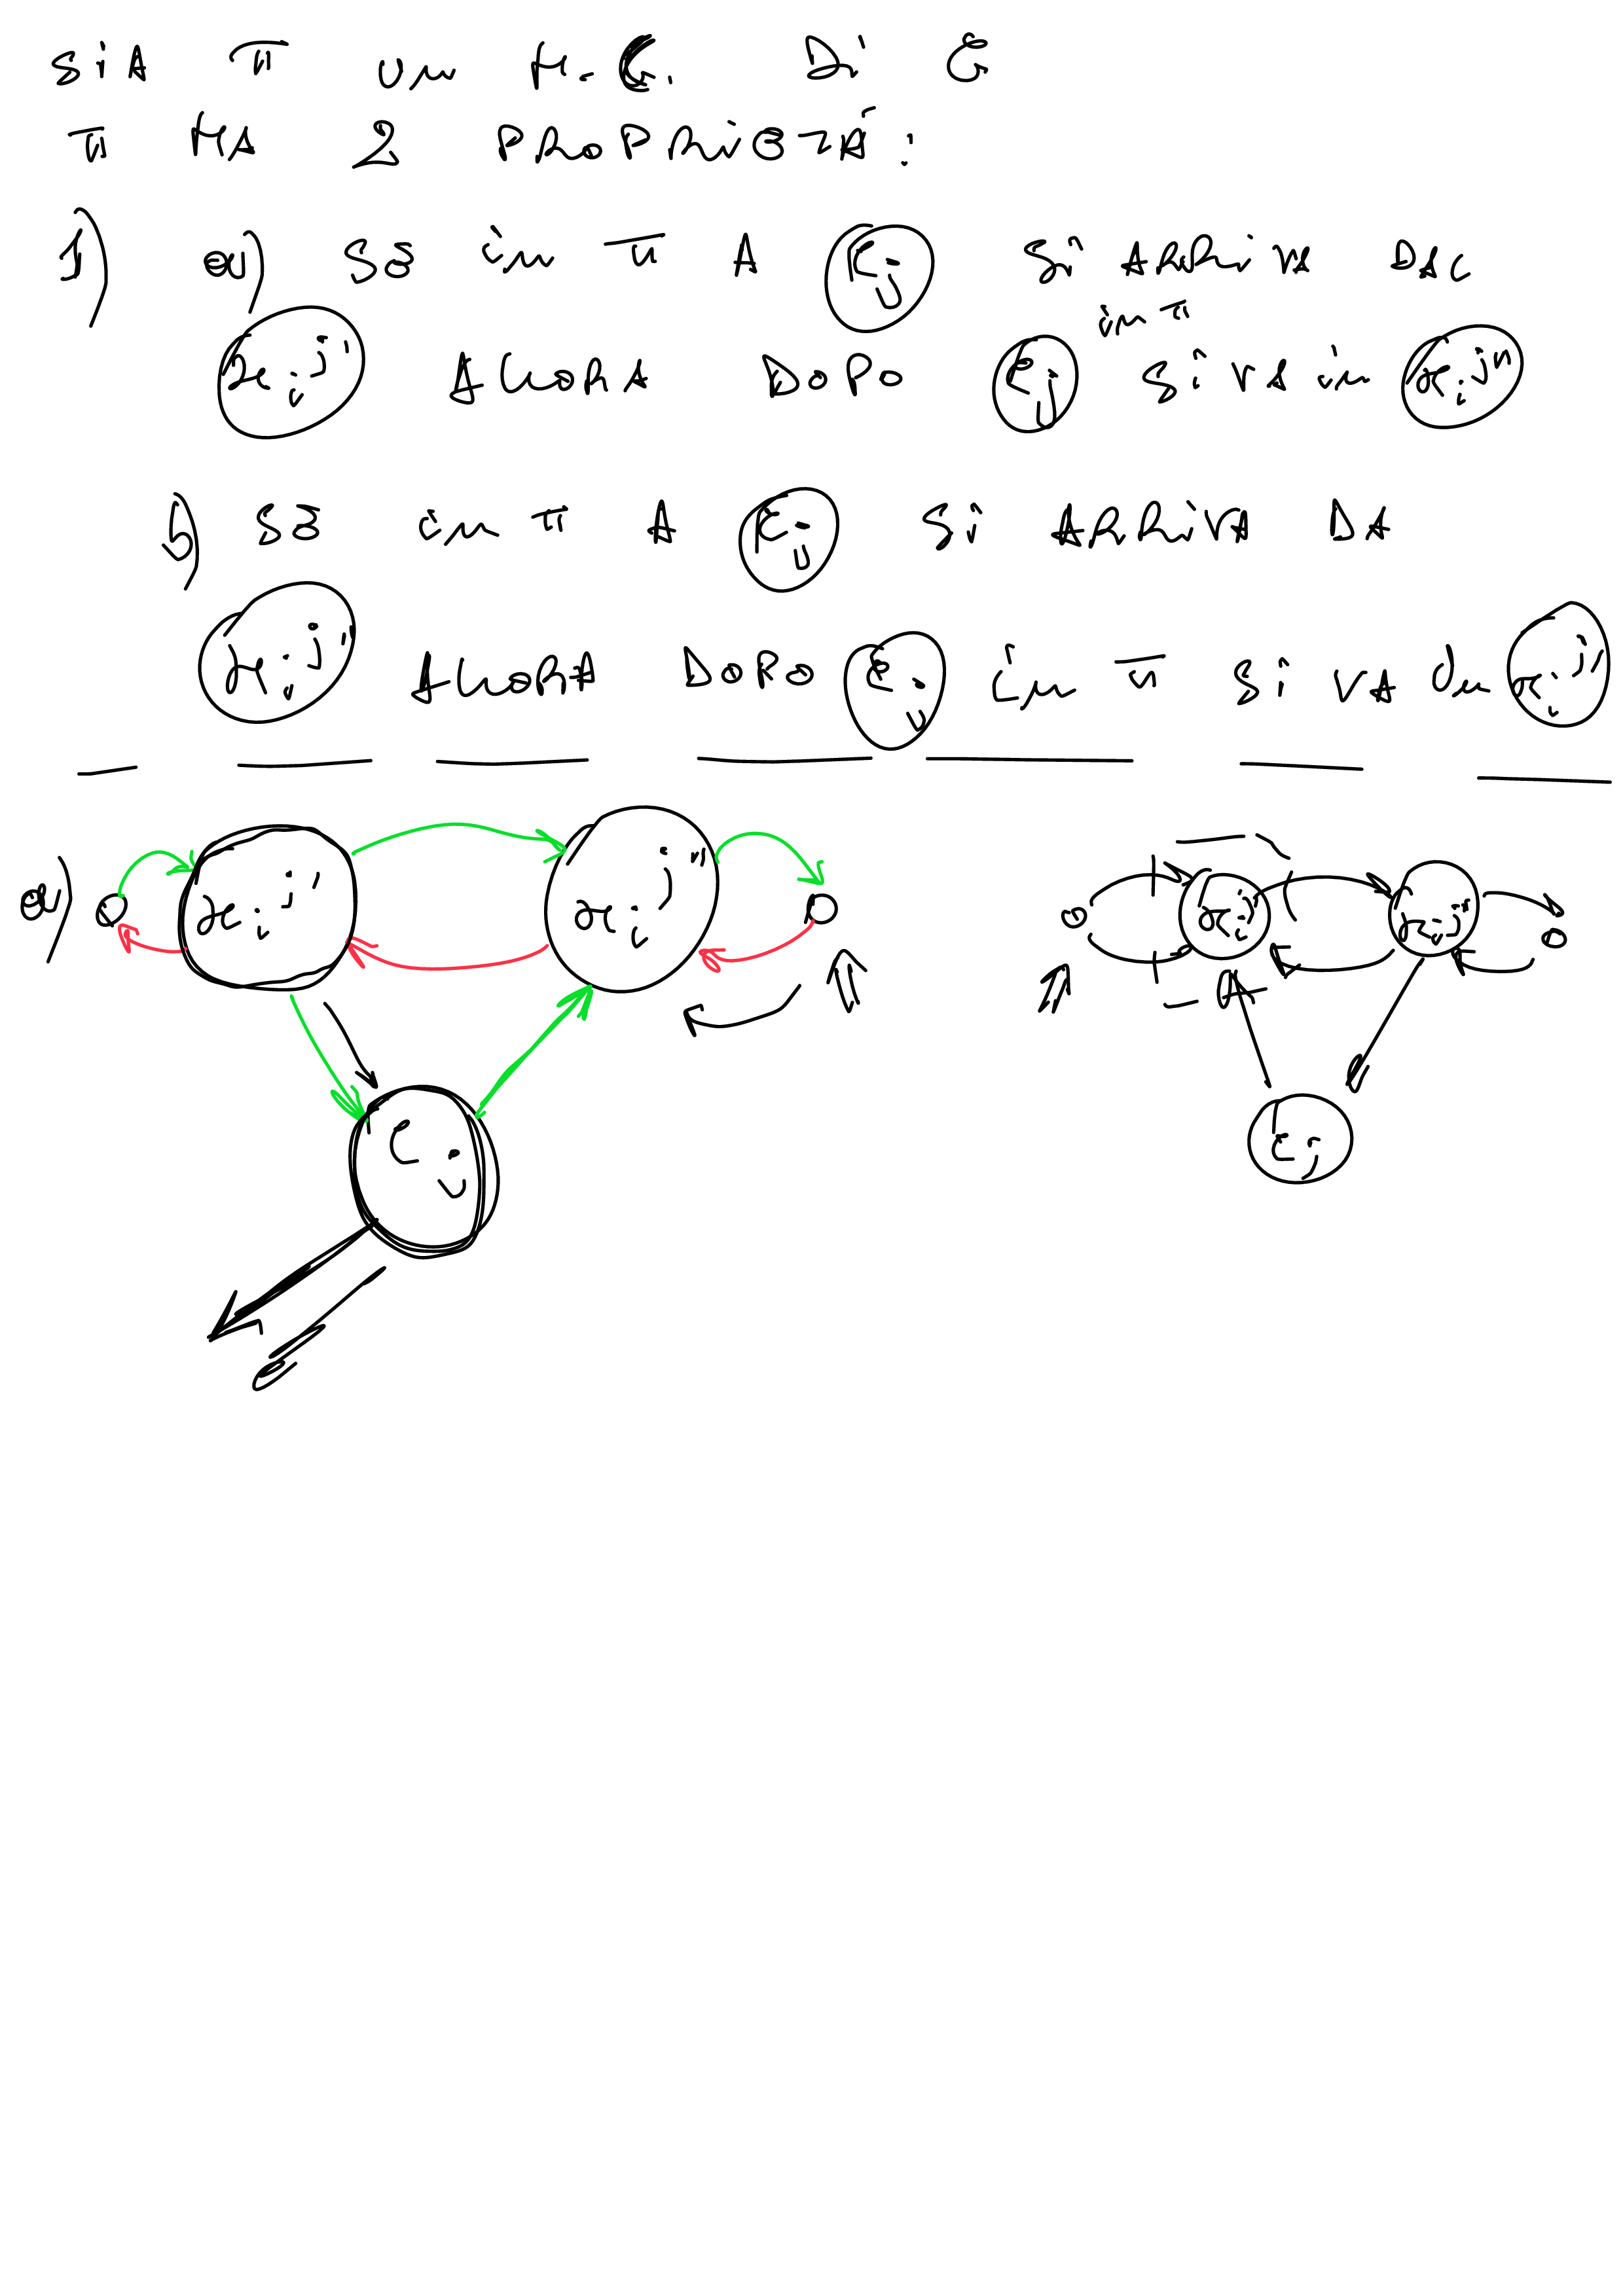 SIA π un H.C. Di G
π HA 2 PROPRIETÀ:
1) a) SE in π A Cj Si ARRIVA DAL
xij' ALLORA DOPO Cj in π Si VA in xij''
b) SE in π A Cj Si ARRIVA DA
xij'' ALLORA DOPO Cj in π Si VA in xij'
a) xij' xij'' xij' xij''
Cj Cj